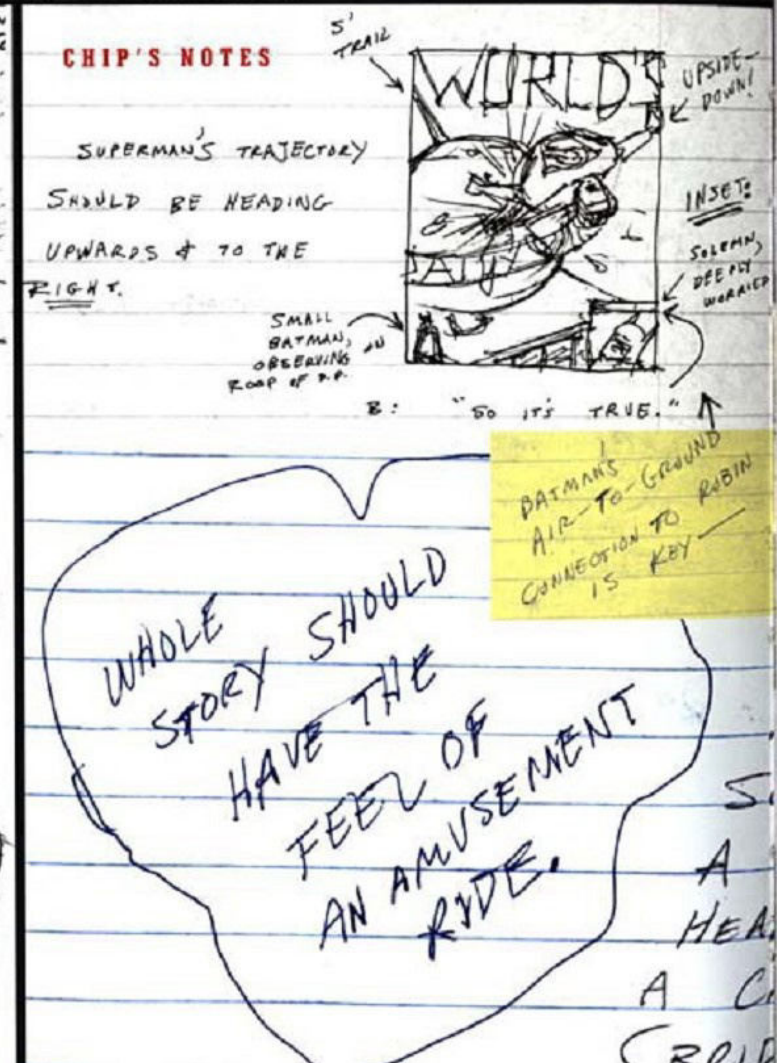 CHIP'S NOTES
SUPERMAN'S TRAJECTORY
SHOULD BE HEADING
UPWARDS & TO THE
RIGHT.
S'
TRAIL
WORLD'S
UPSIDE-
DOWN!
INSET:
SOLEMN,
DEEPLY
WORRIED
DAILY
SMALL
BATMAN,
OBSERVING ON
ROOF OF D.P.
B: "SO IT'S TRUE."
BATMAN'S
AIR-TO-GROUND
CONNECTION TO ROBIN
IS KEY—
WHOLE
STORY SHOULD
HAVE THE
FEEL OF
AN AMUSEMENT
RIDE.
A
HEA
A C